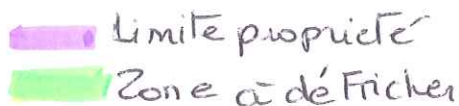 Limite proprieté
Zone à déFricher